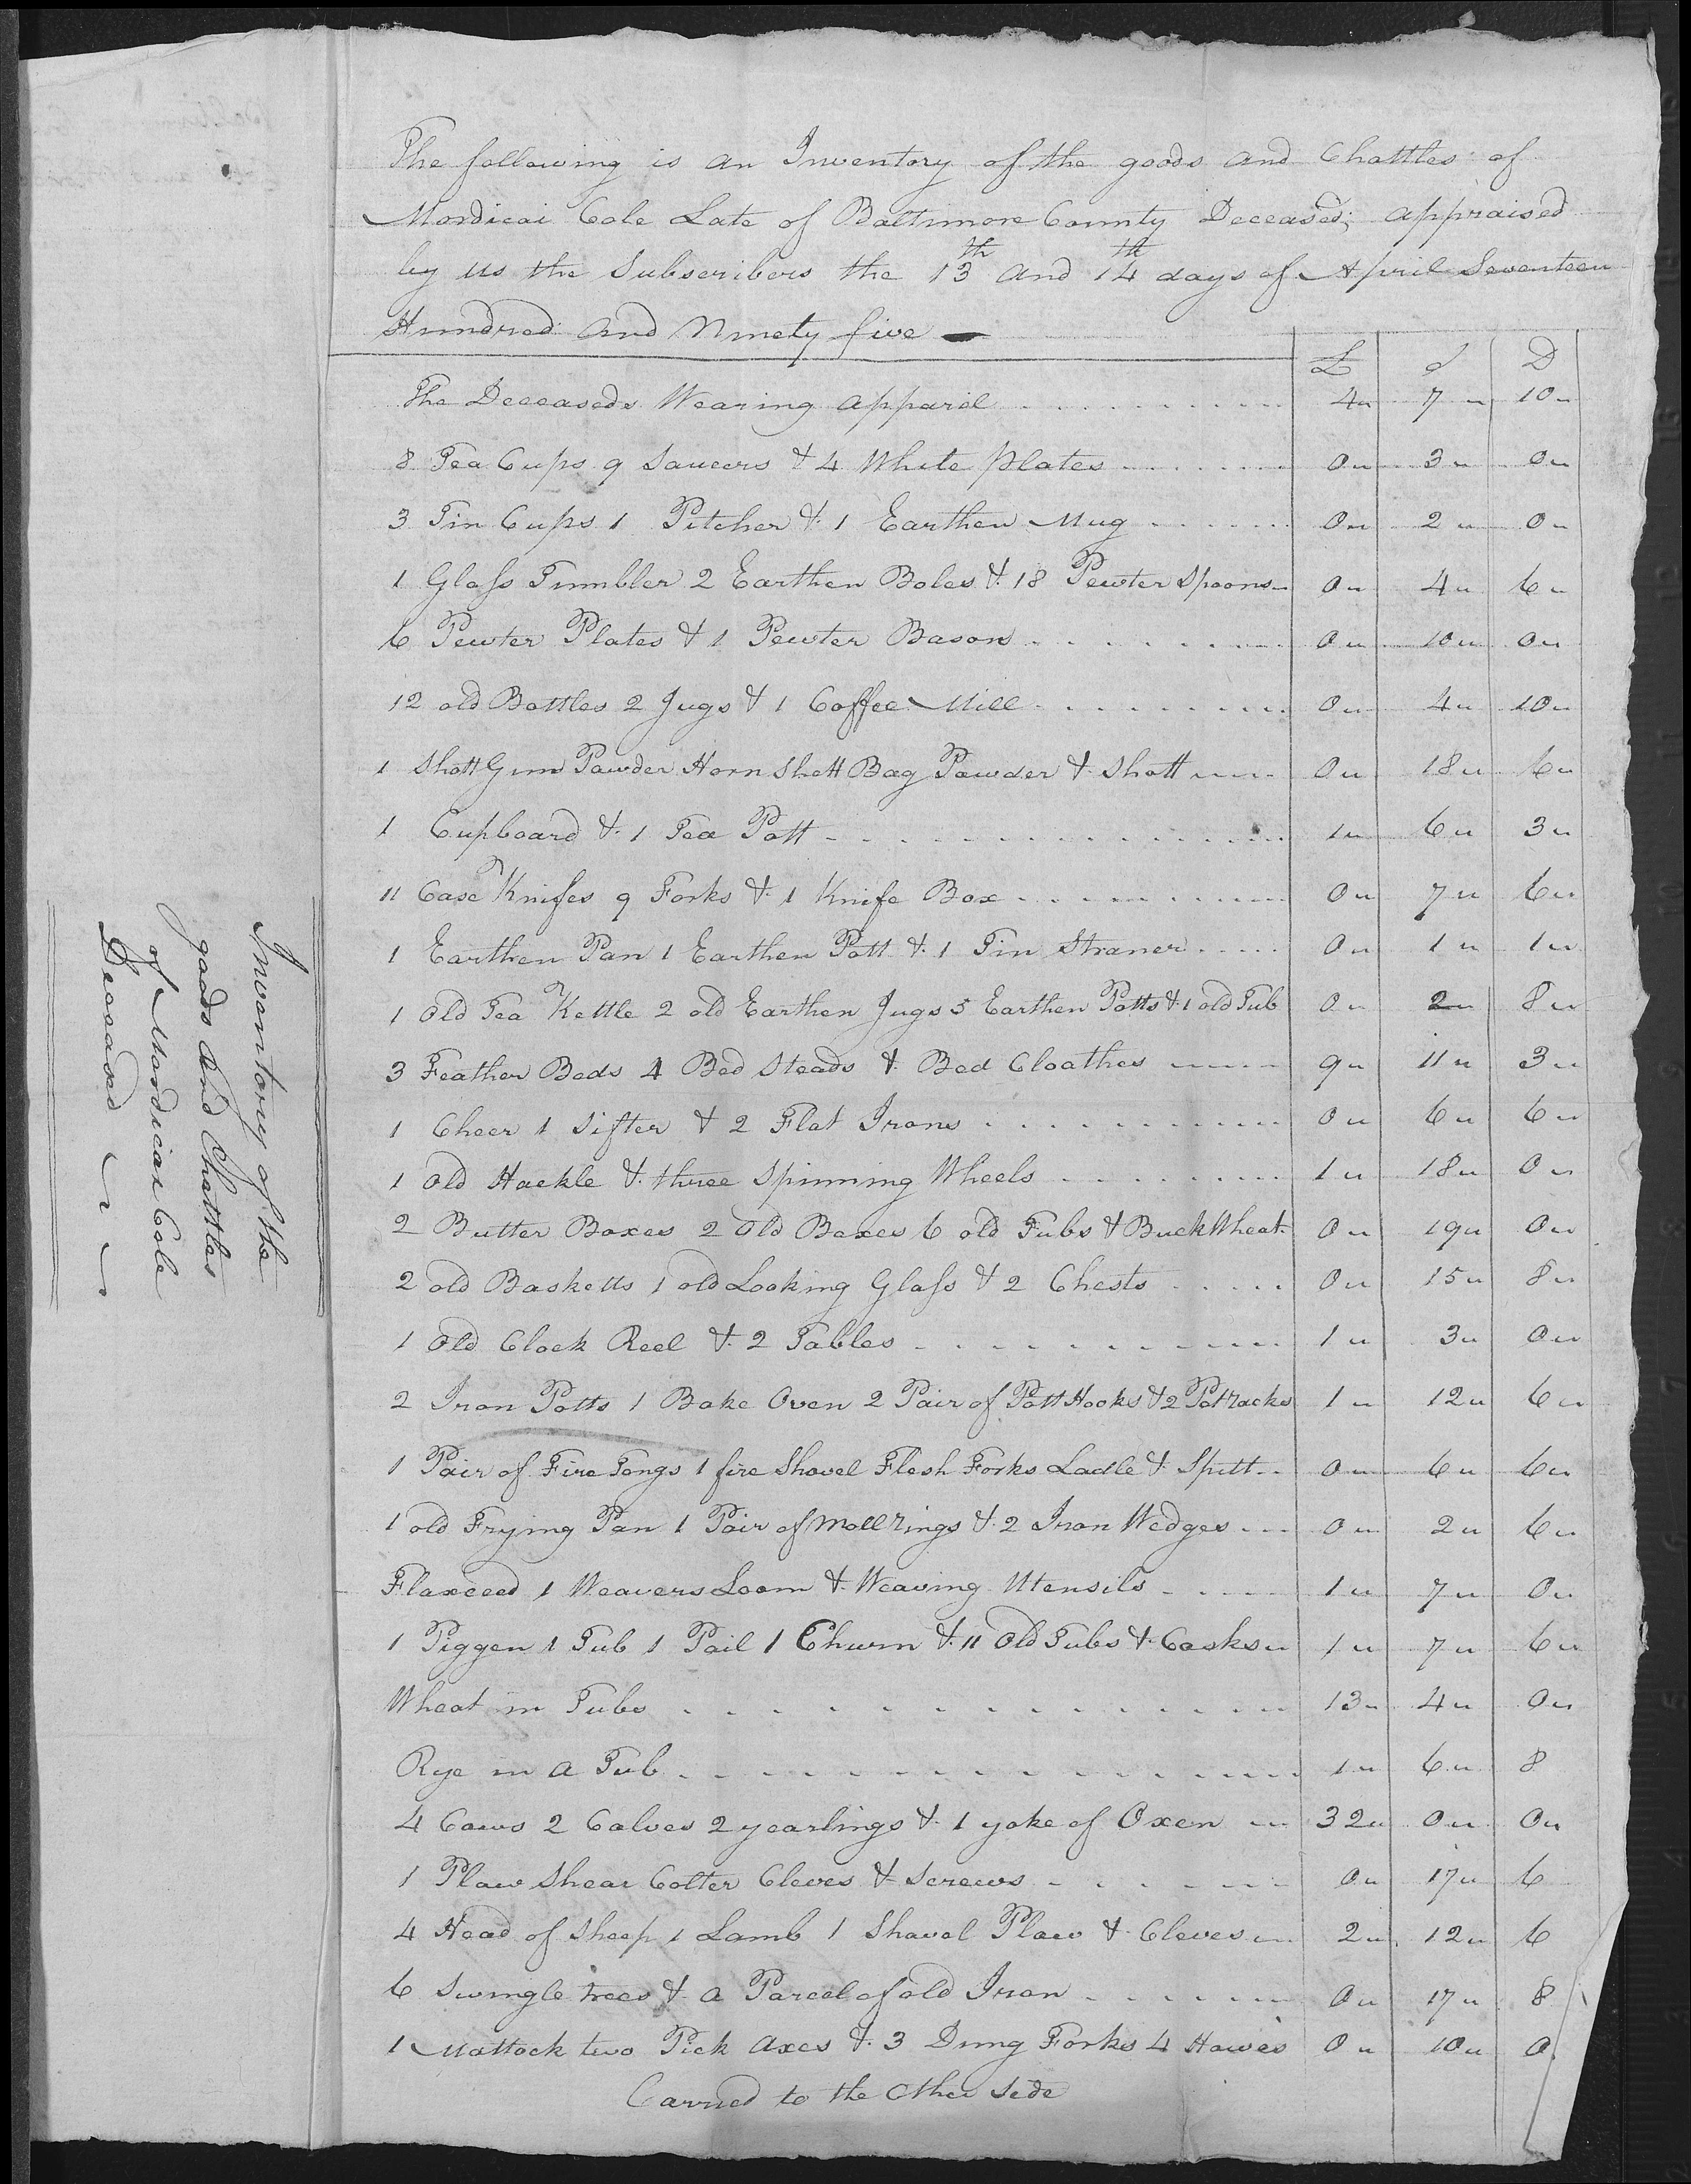 The following is an Inventory of the goods and Chattles of
Mordicai Cole Late of Baltimore County Deceased; appraised
by us the Subscribers the 13th and 14th days of April Seventeen
Hundred and Ninety five
£ S D
The Deceaseds Wearing apparil 4 7 10
8 Tea Cups 9 Saucers & 4 White plates 0 3 0
3 Tin Cups 1 Pitcher & 1 Earthen Mug 0 2 0
1 Glass Tumbler 2 Earthen Boles & 18 Pewter Spoons 0 4 6
6 Pewter Plates & 1 Pewter Bason 0 10 0
12 old Bottles 2 Jugs & 1 Coffee Mill 0 4 10
1 Shott Gun Powder Horn Shott Bag Powder & Shott 0 18 6
1 Cupboard & 1 Tea Pott 1 6 3
11 Case Knifes 9 Forks & 1 Knife Box 0 7 6
1 Earthen Pan 1 Earthen Pott & 1 Tin Straner 0 1 1
1 Old Tea Kettle 2 old Earthen Jugs 5 Earthen Potts & 1 old Tub 0 2 8
3 Feather Beds 4 Bed Steads & Bed Cloathes 9 11 3
1 Cheer 1 Sifter & 2 Flat Irons 0 6 6
1 Old Hackle & three Spinning Wheels 1 18 0
2 Butter Boxes 2 Old Boxes 6 old Tubs & Buck Wheat 0 19 0
2 old Basketts 1 old Looking Glass & 2 Chests 0 15 8
1 Old Clock Reel & 2 Tables 1 3 0
2 Iron Potts 1 Bake Oven 2 Pair of Pott Hooks & 2 Pot racks 1 12 6
1 Pair of Fire Tongs 1 fire Shovel Flesh Forks Ladle & Spitt 0 6 6
1 old Frying Pan 1 Pair of Moll rings & 2 Iron Wedges 0 2 6
Flaxceed 1 Weavers Loom & Weaving Utensils 1 7 0
1 Piggen 1 Tub 1 Pail 1 Churn & 11 Old Tubs & Casks 1 7 6
Wheat in Tubs 13 4 0
Rye in a Tub 1 6 8
4 Cows 2 Calves 2 yearlings & 1 yoke of Oxen 32 0 0
1 Plow Shear Colter Cleves & Screws 0 17 6
4 Head of Sheep 1 Lamb 1 Shovel Plow & Cleves 2 12 6
6 Swingle trees & a Parcel of old Iron 0 17 8
1 Mattock two Pick axes & 3 Dung Forks 4 Howes 0 10 0
Carried to the Other Side
Inventory of the
goods and Chattles
of Mordicai Cole
Deceased